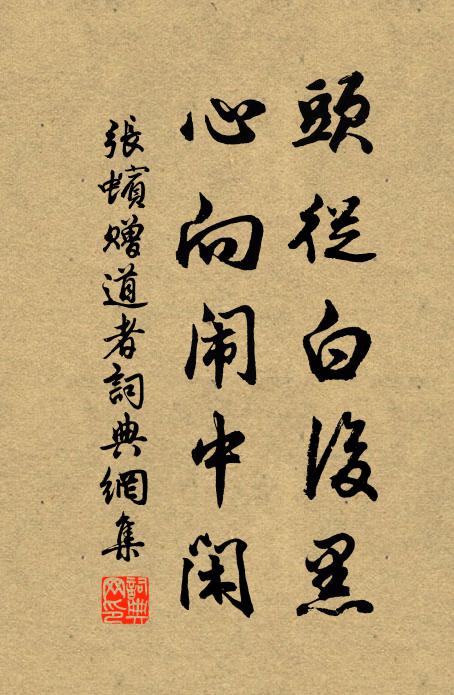 頭從白後黑
心向闹中閑
張蠙贈道者詞典網集
詞典网印